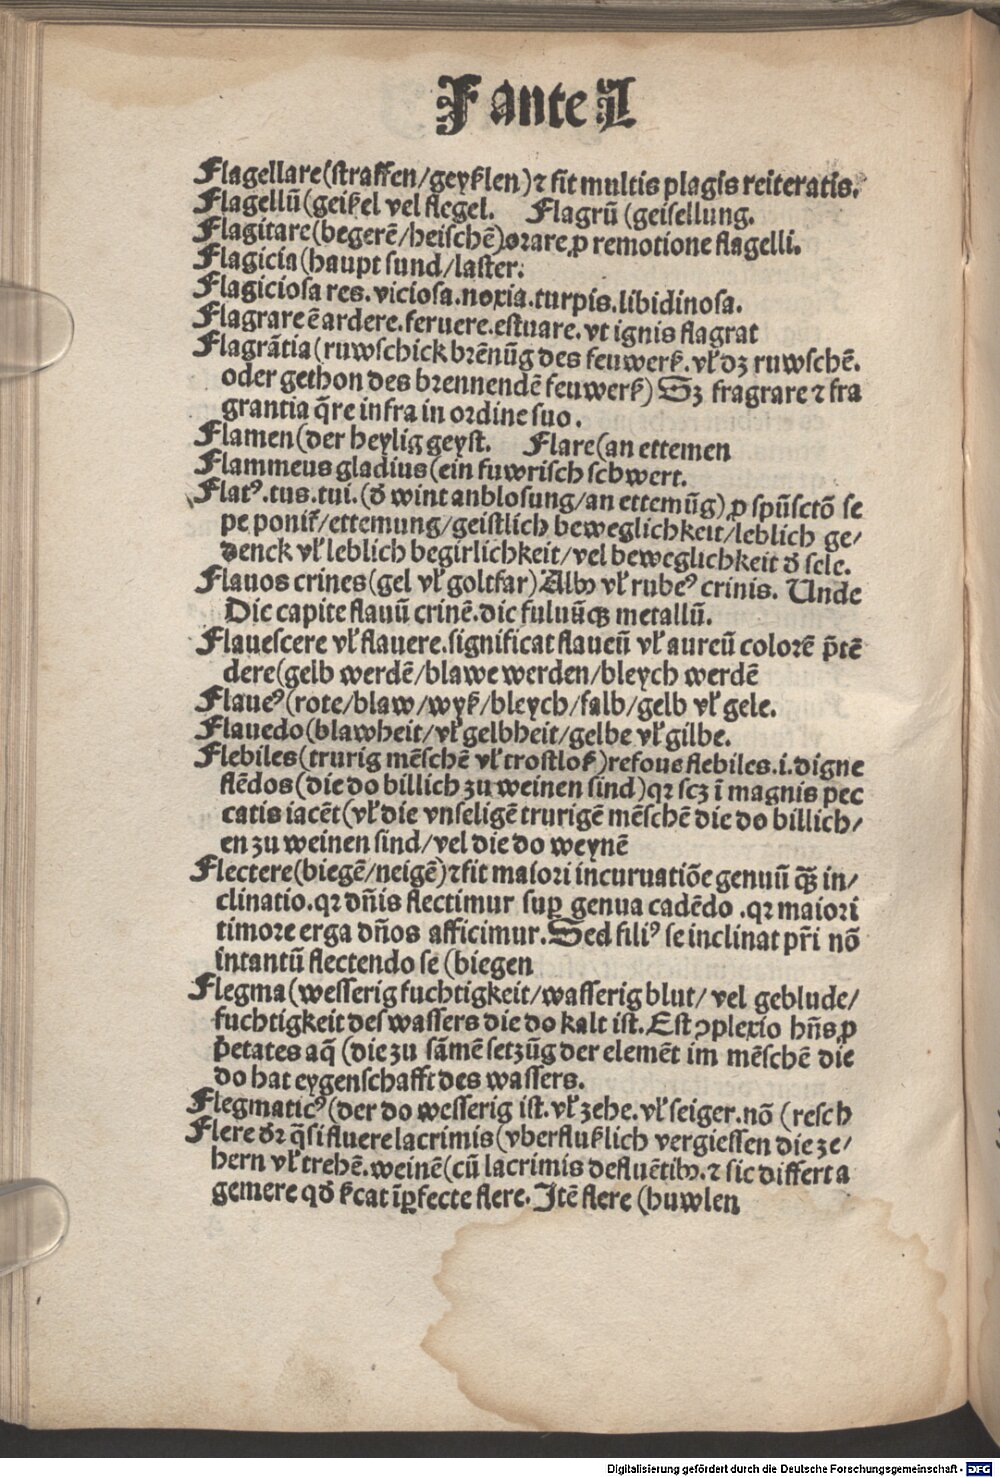 F ante L
Flagellare(straffen/geyßlen)⁊ fit multis plagis reiteratis.
Flagellū(geißel vel flegel. Flagrū (geisellung.
Flagitare(begerē/heischē)orare ꝓ remotione flagelli.
Flagicia(haupt sund/laster.
Flagiciosa res.viciosa.noxia.turpis.libidinosa.
Flagrare ē ardere.feruere.estuare.vt ignis flagrat
Flagrātia(ruwschick brēnūg des feuwerß.vł dz ruwschē.
oder gethon des brennendē feuwerß) Sz fragrare ⁊ fra
grantia q̄re infra in ordine suo.
Flamen(der heylig geyst. Flare(an ettemen
Flammeus gladius(ein fuwrisch schwert.
Flatꝰ.tus.tui.(đ wint anblosung/an ettemūg)ꝓ spūsctō se
pe ponit᷑/ettemung/geistlich beweglichkeit/leblich ge/
denck vł leblich begirlichkeit/vel beweglichkeit đ sele.
Flauos crines(gel vł goltfar)Albꝫ vł rubeꝰ crinis. Unde
Dic capite flauū crinē.dic fuluūqꝫ metallū.
Flauescere vł flauere.significat flaueū vł aureū colorē p̄tē
dere(gelb werdē/blawe werden/bleych werdē
Flaueꝰ(rote/blaw/wyß/bleych/falb/gelb vł gele.
Flauedo(blawheit/vł gelbheit/gelbe vł gilbe.
Flebiles(trurig mēschē vł trostloß)refoue flebiles.i.digne
flēdos(die do billich zu weinen sind)qꝛ scz ī magnis pec
catis iacēt(vł die vnseligē trurigē mēschē die do billich/
en zu weinen sind/vel die do weynē
Flectere(biegē/neigē)⁊ fit maiori incuruatiōe genuū qꝫ̄ in/
clinatio.qꝛ dn̄is flectimur suꝑ genua cadēdo.qꝛ maiori
timore erga dn̄os afficimur.Sed filiꝰ se inclinat pr̄i nō
intantū flectendo se (biegen
Flegma(wesserig fuchtigkeit/wasserig blut/ vel geblude/
fuchtigkeit des wassers die do kalt ist.Est ꝯplexio hn̄s ꝓ
p̄etates aq̄ (die zu sāmē setzūg der elemēt im mēschē die
do hat eygenschafft des wassers.
Flegmaticꝰ(der do wesserig ist.vł zehe.vł seiger.nō (resch
Flere đr q̄si fluere lacrimis(vberflußlich vergiessen die ze/
hern vł trehē.weinē(cū lacrimis defluētibꝫ.⁊ sic differt a
gemere qđ ßcat īꝑfecte flere.Itē flere (huwlen
Digitalisierung gefördert durch die Deutsche Forschungsgemeinschaft - DFG